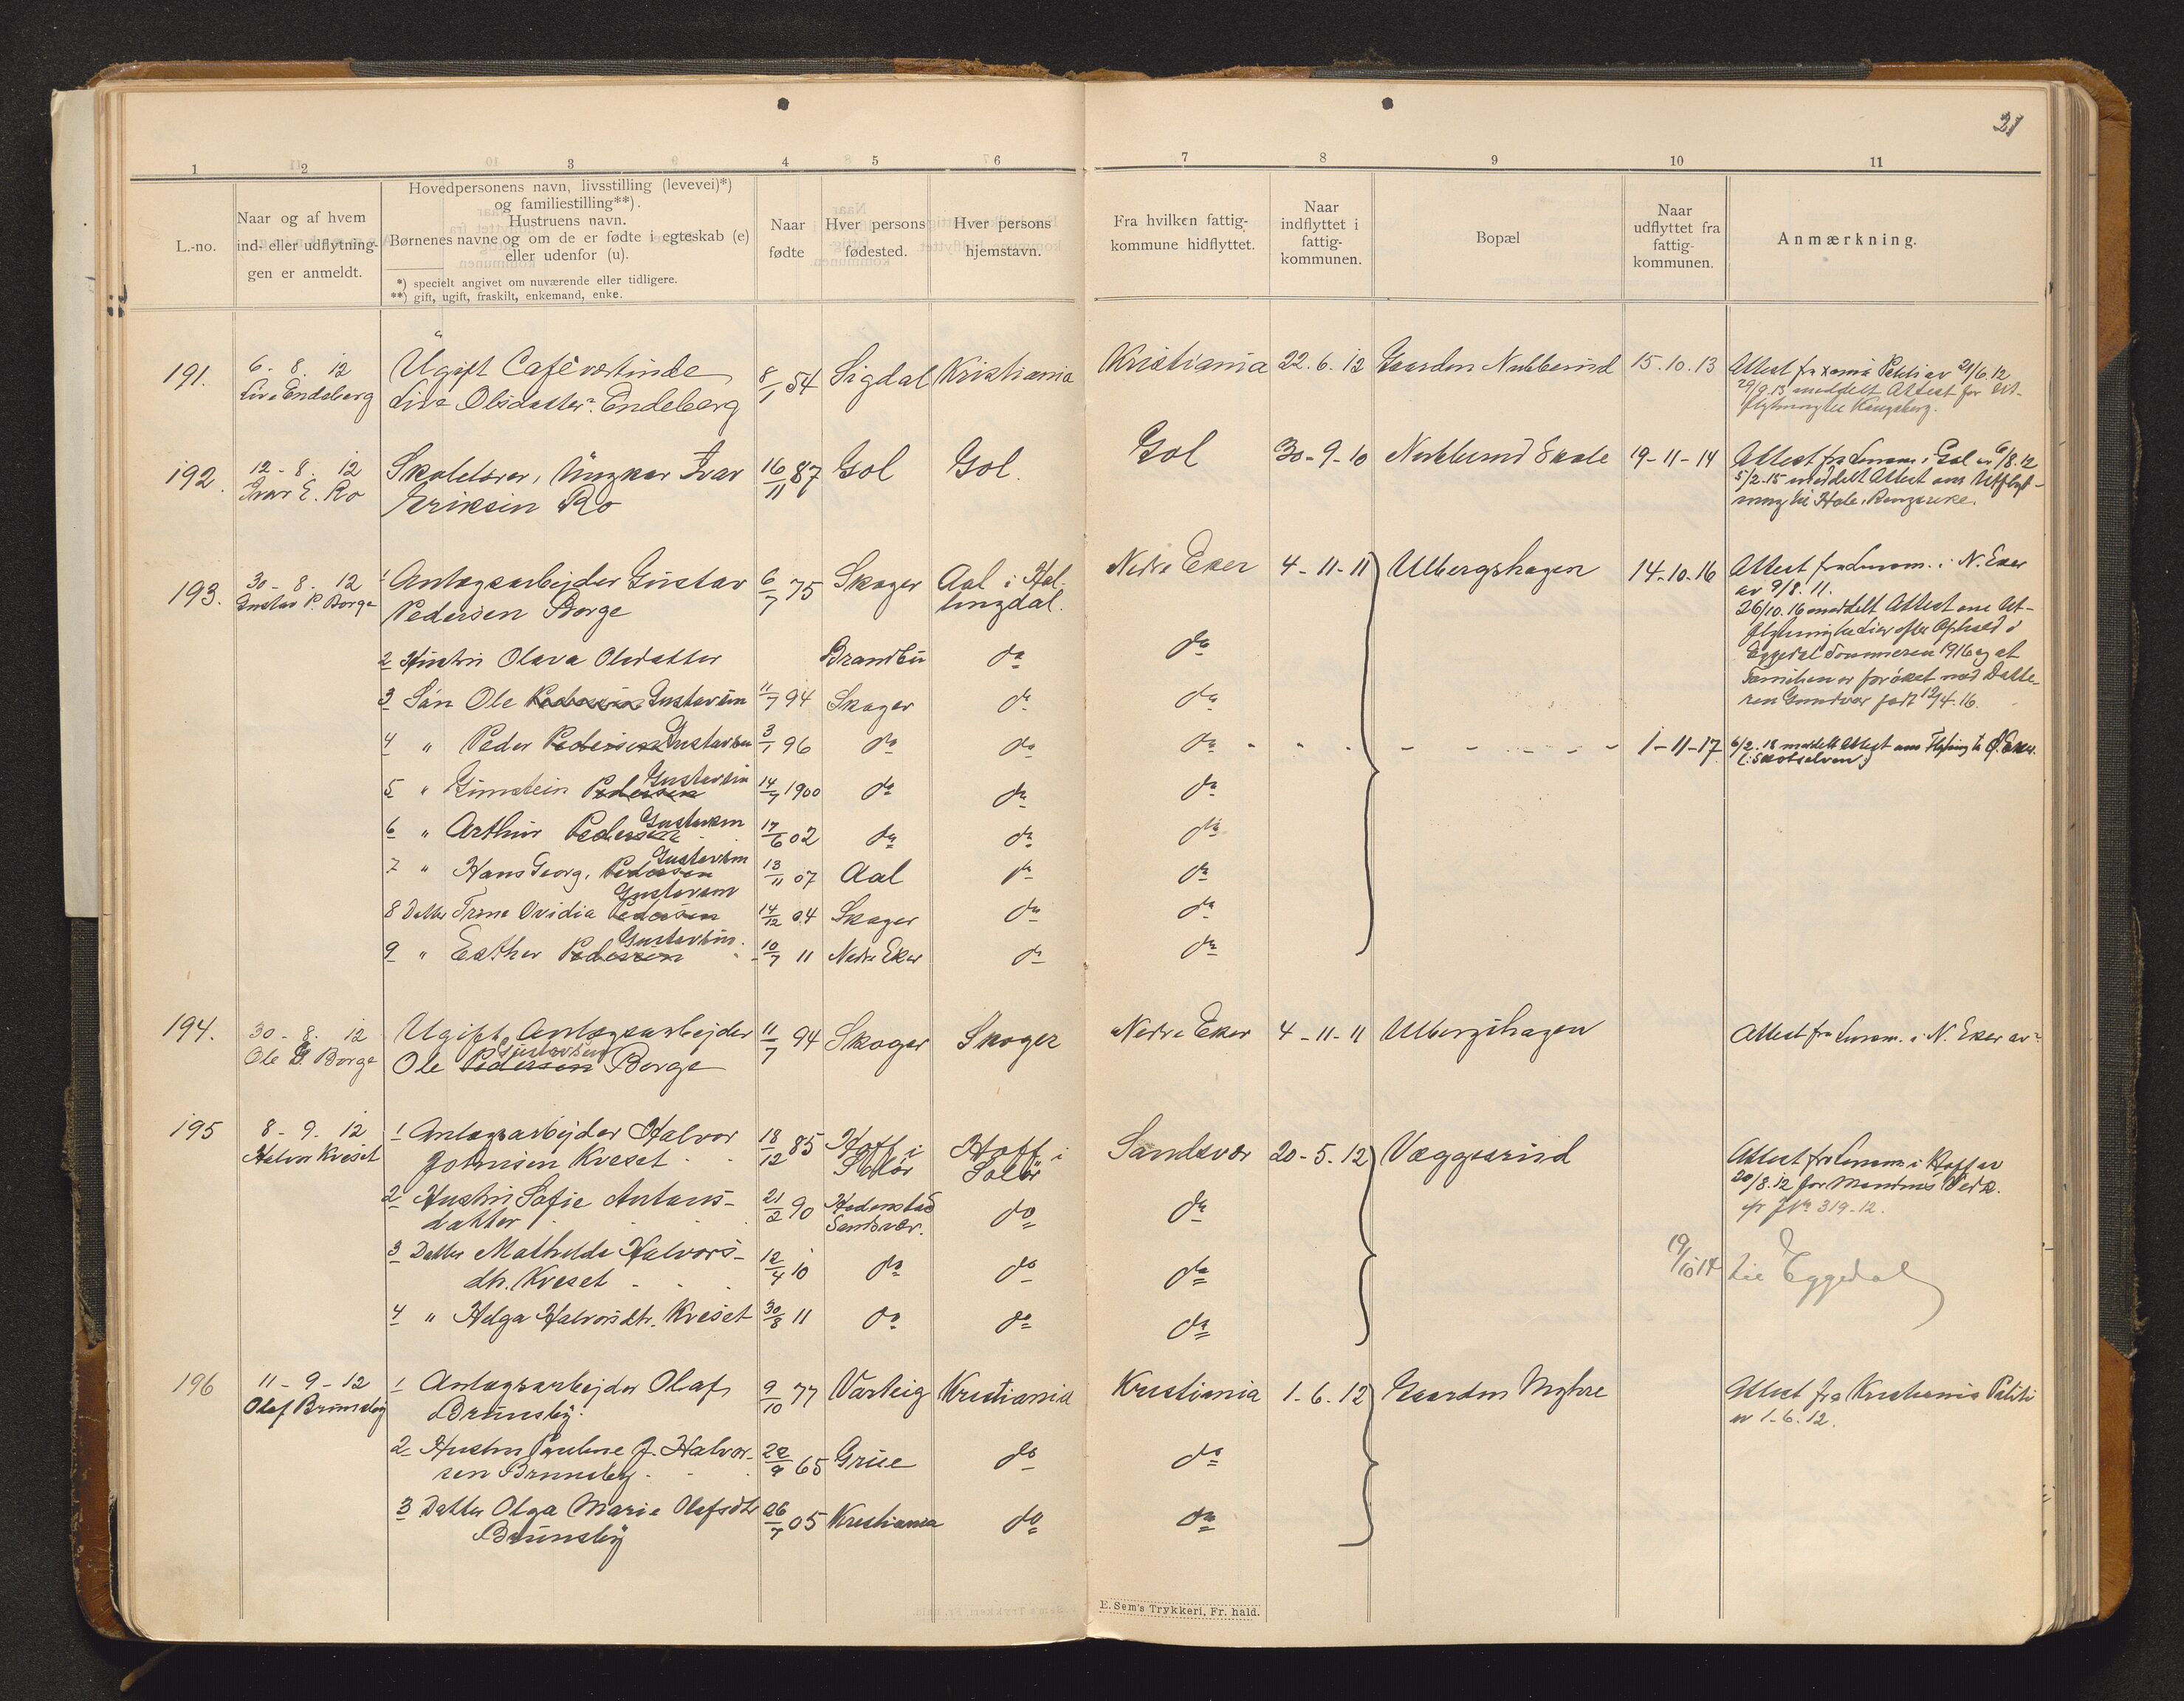 21
1 2 3 4 5 6 7 8 9 10 11
L.-no.
Naar og af hvem
ind- eller udflytnin-
gen er anmeldt.
Hovedpersonens navn, livsstilling (levevei)*)
og familiestilling**).
Hustruens navn.
Børnenes navne og om de er fødte i egteskab (e)
eller udenfor (u).
*) specielt angivet om nuværende eller tidligere.
**) gift, ugift, fraskilt, enkemand, enke.
Naar
fødte
Hver persons
fødested.
Hver persons
hjemstavn.
Fra hvilken fattig-
kommune hidflyttet.
Naar
indflyttet i
fattig-
kommunen.
Bopæl
Naar
udflyttet fra
fattig-
kommunen.
Anmærkning.
191. 6-8. 12 Ugift Caféværtinde 8/1 54 Sigdal Kristiania Kristiania 22.6.12 Gaarden Nubberud 15.10.13 Attest fra Politi av 21/6.12
Live Endeberg Live Olsdatter Endeberg 29/9.13 meddelt Attest for Ut-
flytning til Kongsberg.
192. 12-8. 12 Skolelærer, Ungkar Ivar 16/11 87 Gol Gol. Gol 30-9-10 Nubberud Skole 19-11-14 Attest fra Lensm. i Gol av 6/8.12
Ivar E. Ro Eriksen Ro 5/2.15 meddelt Attest om Utflyt-
ning til Hole, Ringerike.
193. 30-8. 12 1 Anlægsarbejder Gustav 6/7 75 Skoger Aal i Hal- Nedre Eker 4-11-11 Ulbergshagen 14-10-16 Attest fra Lensm. i N. Eker
Gustav P. Borge Pedersen Borge lingdal. av 9/8.11.
26/10.16 meddelt Attest om Ut-
flytning efter Ophold i
2 Hustru Olava Olsdatter Brandbu do do Eggedal Sommeren 1916 og at
Familien er forøket med Datte-
3 Søn Ole Pedersen Gustavsen 11/7 94 Skoger do do ren Gundvor født 12/4.16.
4 " Peder Pedersen Gustavsen 3/1 96 do do do - - - - - - - 1-11-17 6/2.18 meddelt Attest om Flytning til Ø. Eker
(: Skotselven:)
5 " Gunstein Pedersen Gustavsen 14/7 1900 do do do
6 " Arthur Pedersen Gustavsen 17/6 02 do do do
7 " Hans Georg. Pedersen Gustavsen 13/11 07 Aal do do
8 Datter Trine Ovidia Pedersen Gustavsen 14/12 04 Skoger do do
9 " Esther Pedersen Gustavsen. 10/7 11 Nedre Eker do do
194. 30-8. 12 Ugift Anlægsarbejder 11/7 94 Skoger Skoger Nedre Eker 4-11-11 Ulbergshagen Attest fra Lensm. i N. Eker av
Ole G. Borge Ole Pedersen Gustavsen Borge
195 8-9. 12 1 Anlægsarbejder Halvor 18/12 85 Hoff i Hoff i Sandsvær 20-5.12 Væggerud Attest fra Lensm. i Hoff av
Halvor Kveset Johnsen Kveset Solør Solør 20/8.12 for Mandens Vedk.
2 Hustru Sofie Antons- 21/2 90 Hedenstad do do 319-12.
datter Sandsvær.
3 Datter Mathilde Halvors- 12/4 10 do do do 19/10 14 til Eggedal
dtr. Kveset
4 " Helga Halvorsdtr. Kveset 30/8 11 do do do
196 11-9-12 1 Anlægsarbejder Olaf 9/10 77 Varteig Kristiania Kristiania 1.6.12 Gaarden Myhre Attest fra Kristiania Politi
Olaf Brunsby Brunsby. av 1-6.12.
2 Hustru Pauline J. Halvor- 22/9 65 Grue do do
sen Brunsby
3 Datter Olga Marie Olafsdtr 26/7 05 Kristiania do do
Brunsby
E. Sem's Trykkeri, Fr. hald.